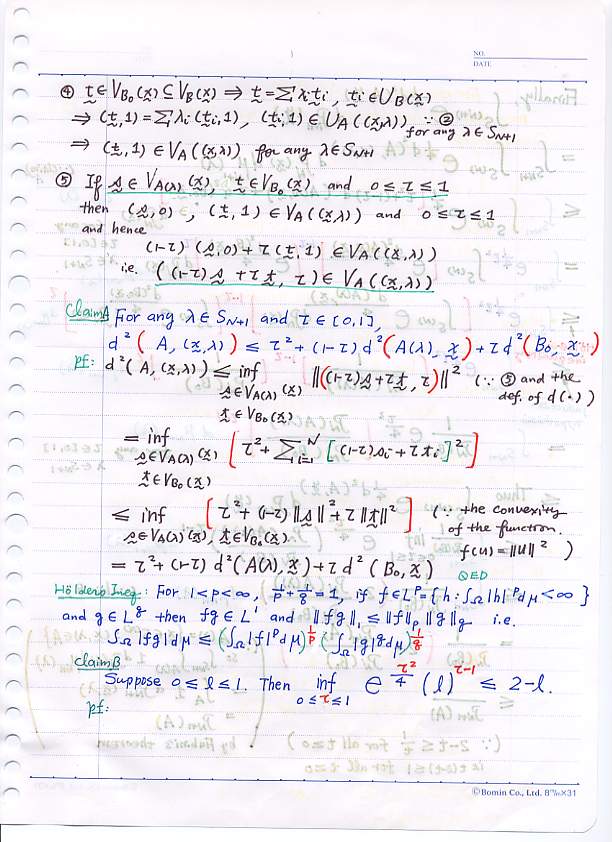 NO.
DATE
④ t̰ ∈ V_{B₀}(x̰) ⊆ V_B(x̰) ⇒ t̰ = Σ λᵢ t̰ᵢ, t̰ᵢ ∈ U_B(x̰)
⇒ (t̰, 1) = Σ λᵢ (t̰ᵢ, 1), (t̰ᵢ, 1) ∈ U_A((x̰,λ)) ∵ ②
for any λ ∈ S_{N+1}
⇒ (t̰, 1) ∈ V_A((x̰,λ)) for any λ ∈ S_{N+1}
⑤ If s̰ ∈ V_{A(λ)}(x̰), t̰ ∈ V_{B₀}(x̰) and 0 ≤ τ ≤ 1
then (s̰, 0), (t̰, 1) ∈ V_A((x̰,λ)) and 0 ≤ τ ≤ 1
and hence
(1-τ)(s̰,0) + τ(t̰,1) ∈ V_A((x̰,λ))
i.e. ((1-τ)s̰ + τt̰, τ) ∈ V_A((x̰,λ))
Claim A For any λ ∈ S_{N+1} and τ ∈ [0,1],
d²(A, (x̰,λ)) ≤ τ² + (1-τ) d²(A(λ), x̰) + τ d²(B₀, x̰)
pf: d²(A, (x̰,λ)) ≤ inf ‖((1-τ)s̰ + τt̰, τ)‖² (∵ ⑤ and the
s̰ ∈ V_{A(λ)}(x̰) def. of d(·))
t̰ ∈ V_{B₀}(x̰)
= inf [τ² + Σ_{i=1}^N [(1-τ)sᵢ + τtᵢ]²]
s̰ ∈ V_{A(λ)}(x̰)
t̰ ∈ V_{B₀}(x̰)
≤ inf [τ² + (1-τ)‖s̰‖² + τ‖t̰‖²] (∵ the convexity
of the function.
s̰ ∈ V_{A(λ)}(x̰), t̰ ∈ V_{B₀}(x̰) f(u) = ‖u‖² )
= τ² + (1-τ) d²(A(λ), x̰) + τ d²(B₀, x̰)
QED
Hölders Ineq: For 1<p<∞, 1/p + 1/q = 1, if f ∈ L^p = {h: ∫_Ω |h|^p dμ < ∞}
and g ∈ L^q then fg ∈ L¹ and ‖fg‖₁ ≤ ‖f‖_p ‖g‖_q i.e.
∫_Ω |fg| dμ ≤ (∫_Ω |f|^p dμ)^{1/p} (∫_Ω |g|^q dμ)^{1/q}
Claim B
Suppose 0 ≤ l ≤ 1. Then inf_{0≤τ≤1} e^{τ²/4} (l)^{τ-1} ≤ 2-l.
pf:
©Bomin Co., Ltd. 8㎜×31